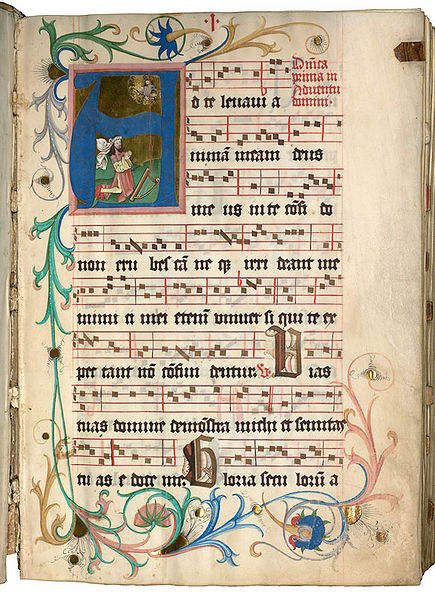 ·I·
Dn̄ica
prima in
Aduentu
domini·
Ad te leuaui a
nimā meam deus
me us in te cōfi do
non eru bes cā ne q̄ irri deant me
inimi ci mei etenī vniuer si qui te ex
pec tant nō cōfun dentur. V. Vias
tuas domine demōstra michi et semitas
tu as e doce me. Gloria seculorū a